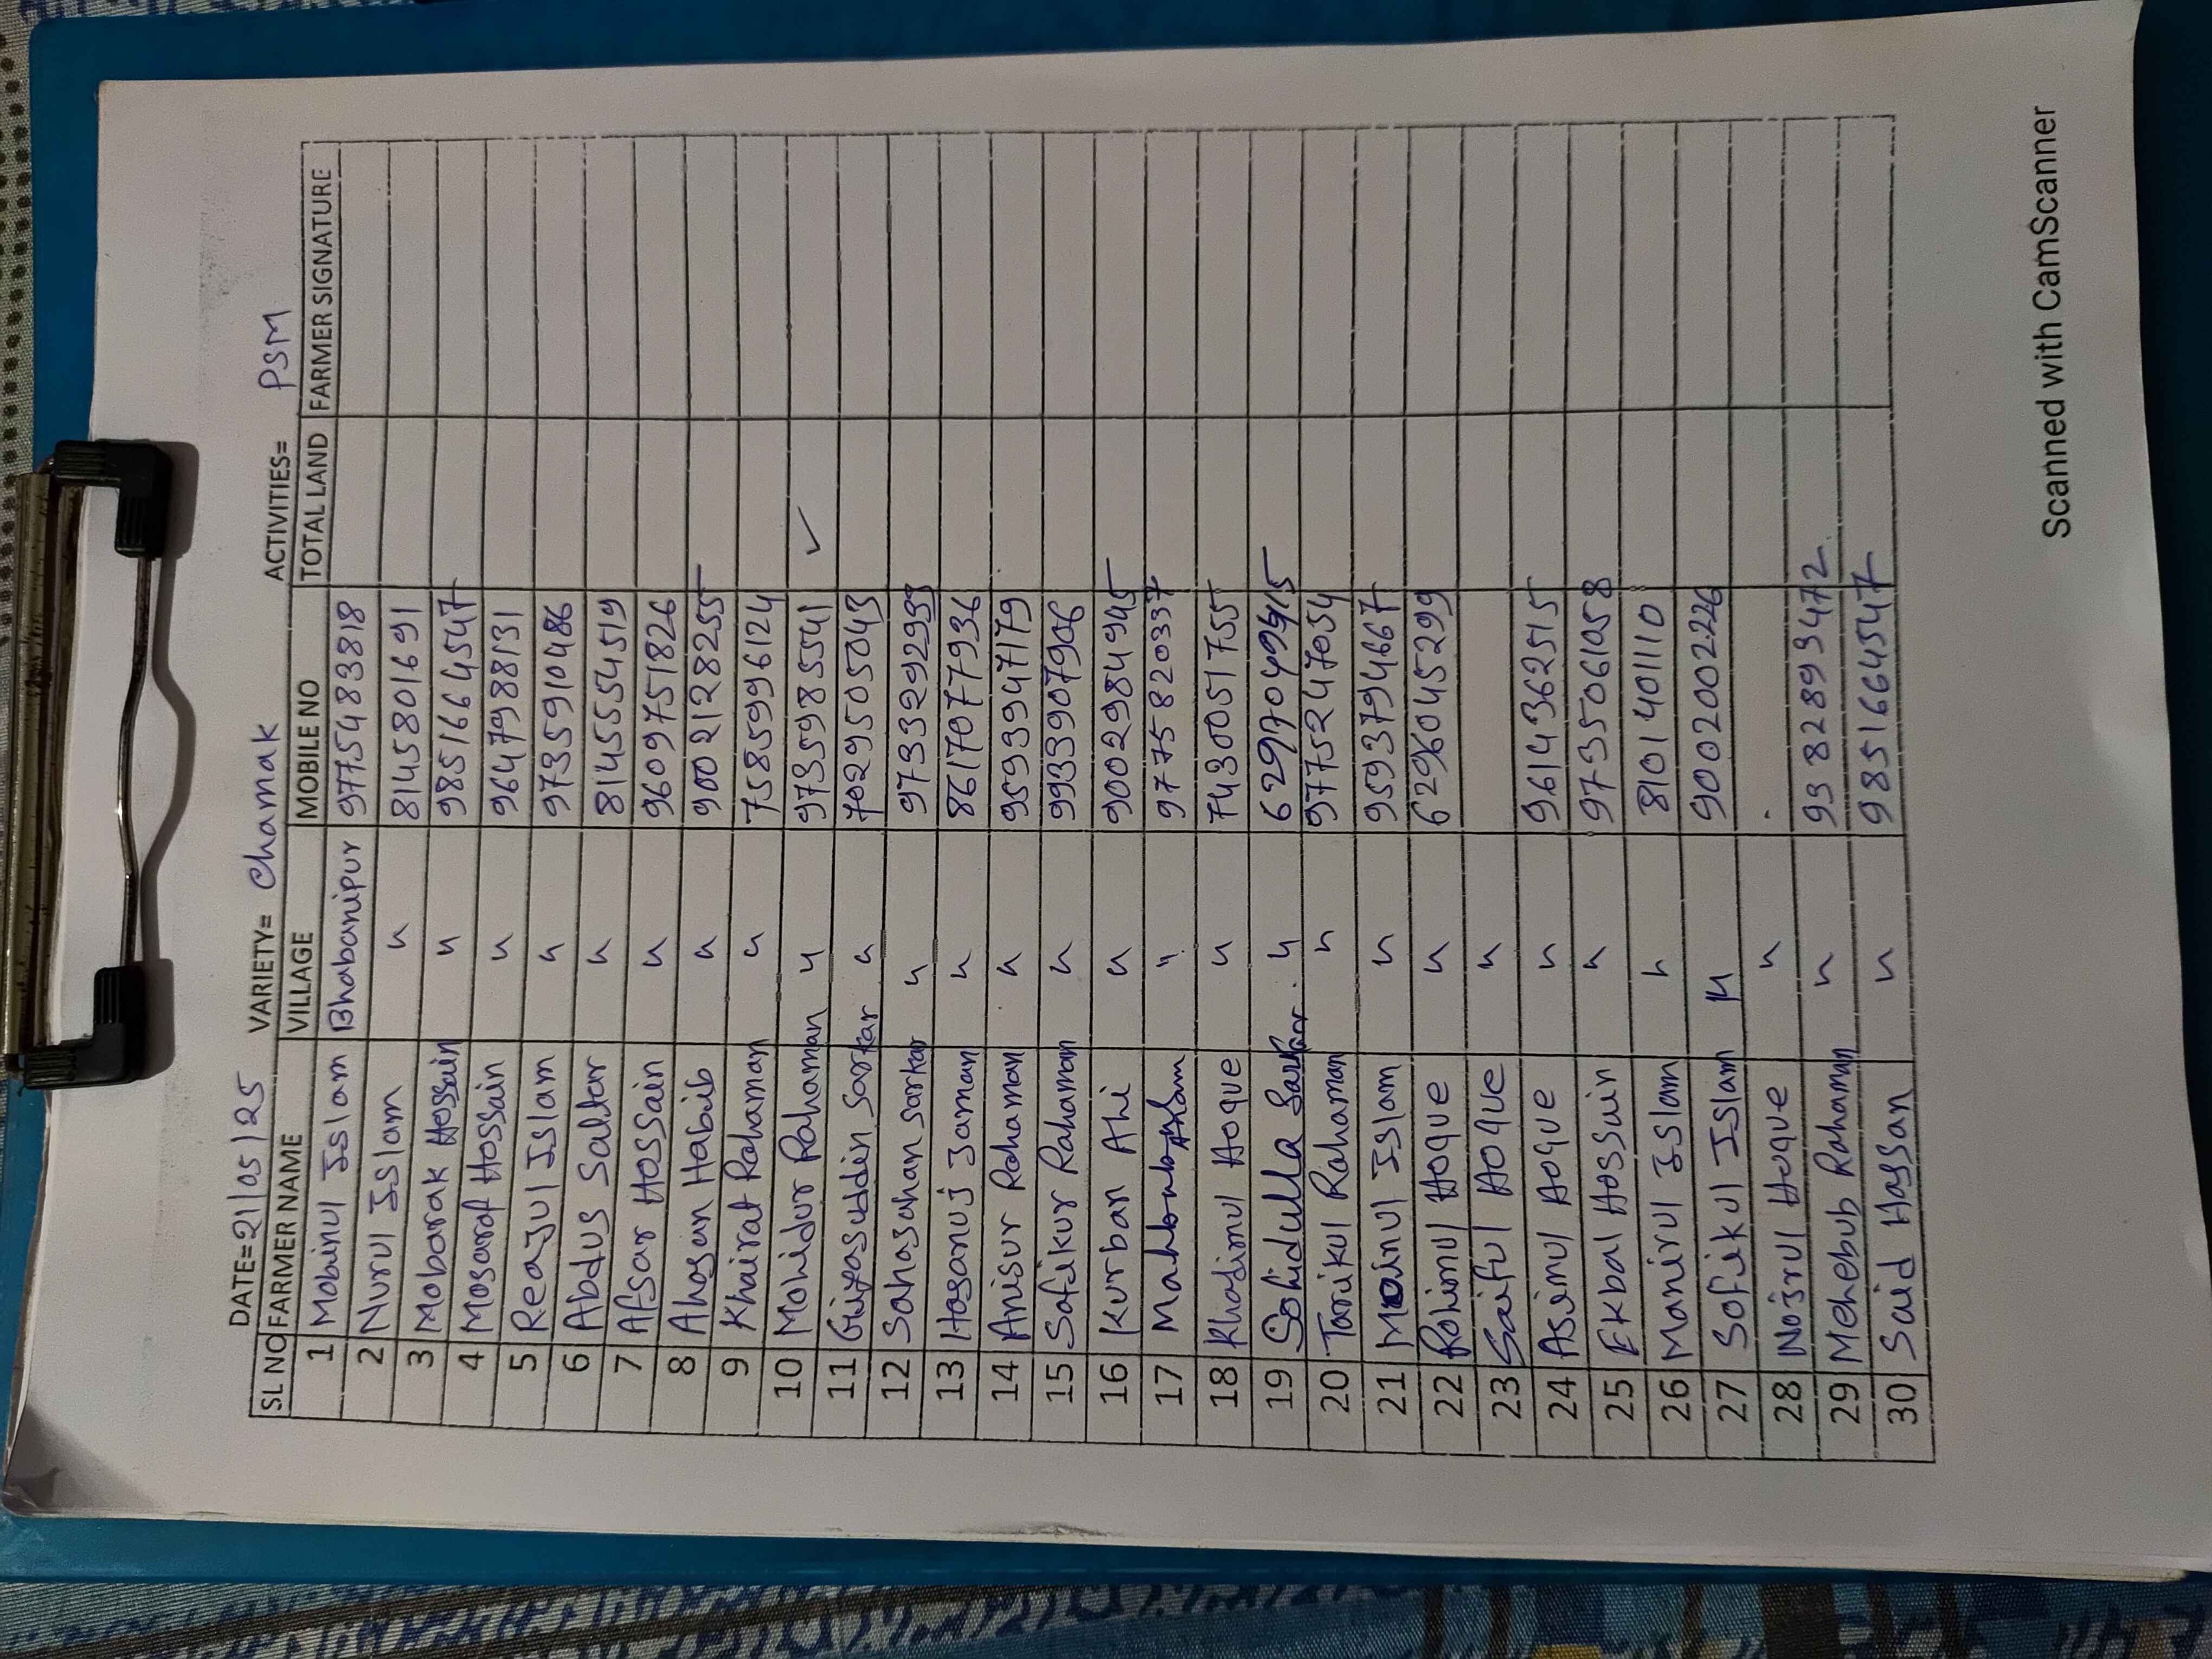 DATE=21/05/25 VARIETY= Chamak ACTIVITIES= PSM
SL NO FARMER NAME VILLAGE MOBILE NO TOTAL LAND FARMER SIGNATURE
1 Mobinul Islam Bhabanipur 9775483818
2 Nurul Islam " 8145801691
3 Mobarak Hossain " 9851664547
4 Mosarof Hossain " 9647988131
5 Reajul Islam " 9735910486
6 Abdus Sattar " 8145554519
7 Afsar Hossain " 9609751826
8 Ahosan Habib " 9002128255
9 Khairat Rahaman " 7585996124
10 Mohidur Rahaman " 9735985541 ✓
11 Giyasuddin Sarkar " 7029505043
12 Sahasahan Sarkar " 9733292953
13 Hasanuj Jaman " 8617077936
14 Anisur Rahaman " 9593947179
15 Safikur Rahaman " 9933907906
16 Kurban Ali " 9002984945
17 "
18 Khadimul Hoque " 7430051755
19 Sohidulla Sarkar "
20 Tarikul Rahaman " 9775247054
21 Mainul Islam " 9593794667
22 Rohimul Hoque " 6296045299
23 Saiful Hoque "
24 Asimul Hoque " 9614362515
25 Ekbal Hossain " 9735061058
26 Manirul Islam " 8101401110
27 Sofikul Islam " 9002002226
28 Nojrul Hoque "
29 Mehebub Rahaman " 9382893472
30 Said Hassan " 9851664547
Scanned with CamScanner